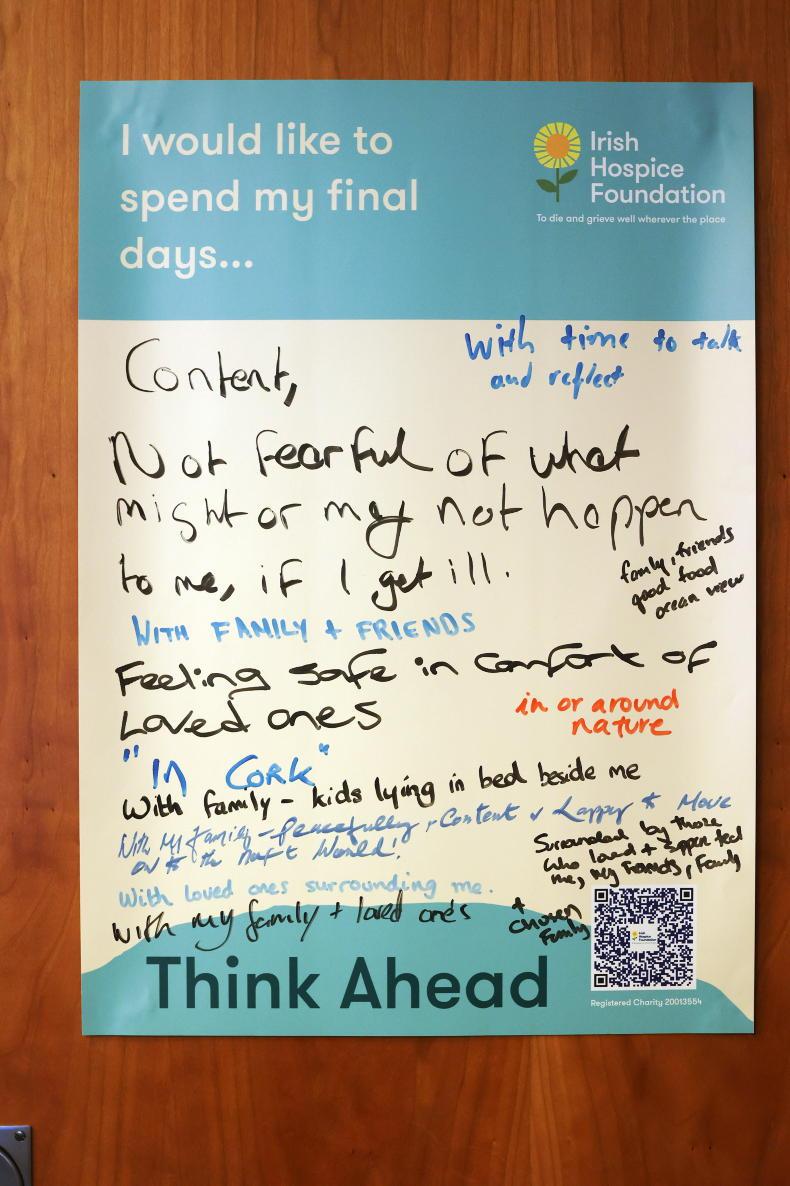 I would like to
spend my final
days...
Irish
Hospice
Foundation
To die and grieve well wherever the place
With time to talk
and reflect
Content,
Not fearful of what
might or my not happen
to me, if I get ill.
family, friends
good food
ocean view
WITH FAMILY + FRIENDS
Feeling safe in comfort of
Loved ones
in or around
nature
"In CORK"
With family - kids lying in bed beside me
With My family - peacefully, Content & Happy to Move
on to the next World!
Surrounded by those
who loved + support
me, my friends, family
+ chosen
family
With loved ones surrounding me.
With my family + loved one's
Think Ahead
Irish
Hospice
Foundation
Registered Charity 20013554